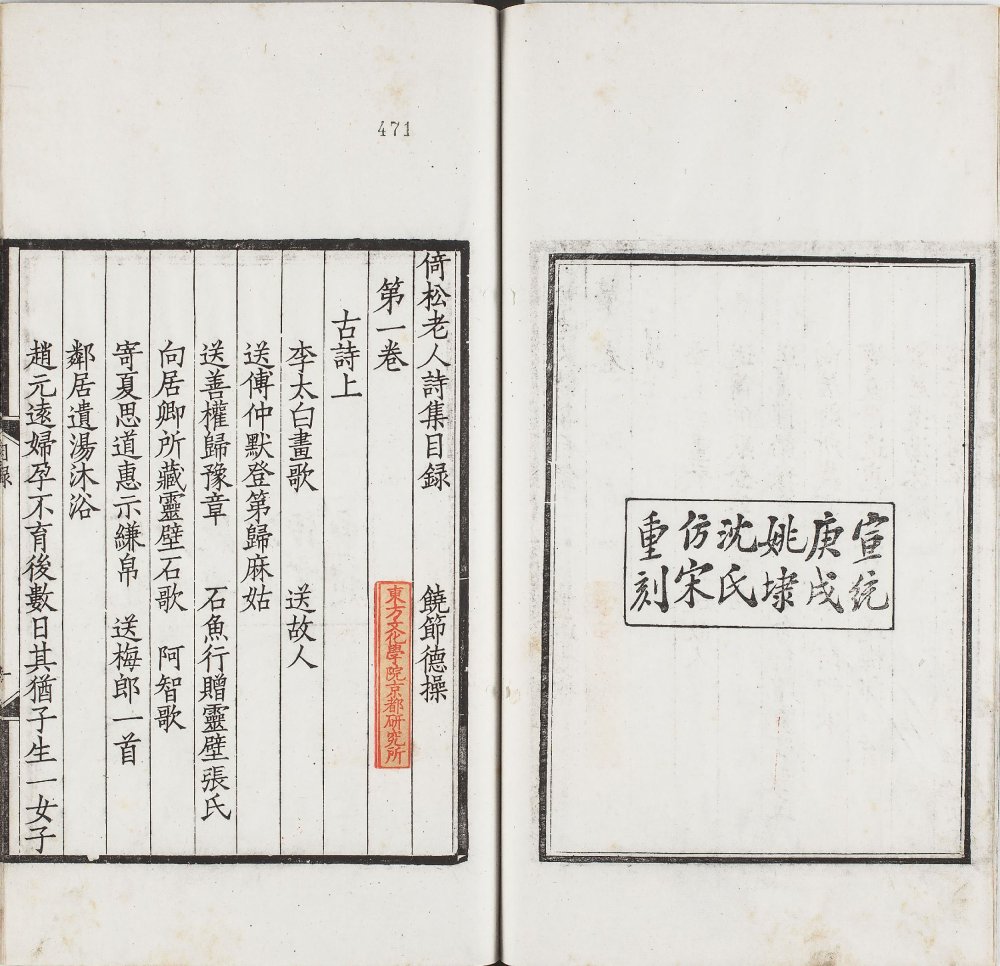 宣統
庚戌
姚埭
沈氏
仿宋
重刻
471
倚松老人詩集目録 饒節德操
第一卷
東方文化學院京都研究所
古詩上
李太白畫歌 送故人
送傅仲默登第歸麻姑
送善權歸豫章 石魚行贈靈壁張氏
向居卿所藏靈壁石歌 阿智歌
寄夏思道惠示縑帛 送梅郎一首
鄰居遺湯沐浴
趙元逺婦孕不育後數日其猶子生一女子
目録
一